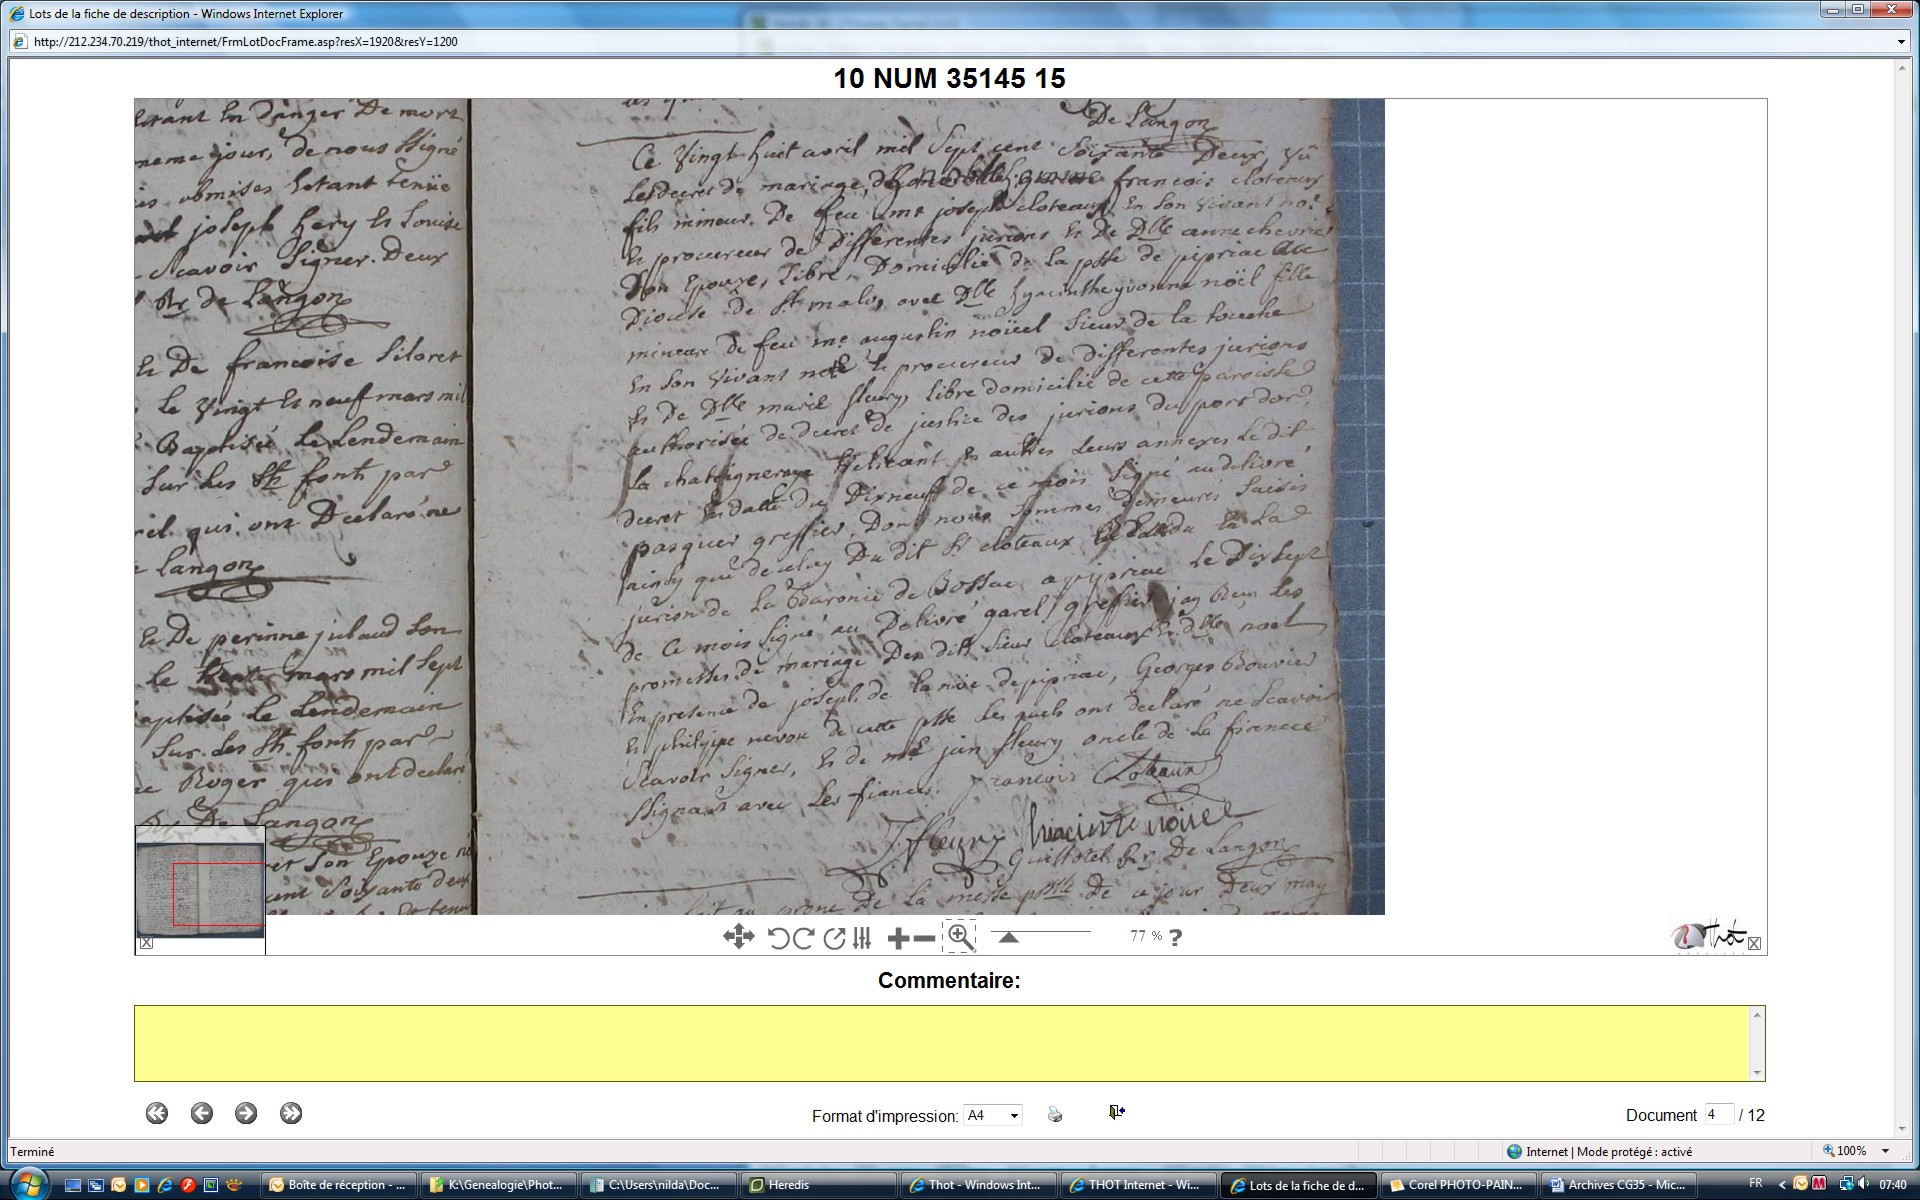 Lots de la fiche de description - Windows Internet Explorer
http://212.234.70.219/thot_internet/FrmLotDocFrame.asp?resX=1920&resY=1200
10 NUM 35145 15
Estant En danger De mort
meme jour, de nous Signé
obmises Estant tenüe
joseph hery Et Louise
Scavoir Signer. Deux
de Langon
Et De francoise Siloret
Le Vingt Et neuf mars mil
Baptisée Le Lendemain
Sur Les Sts fonts par
qui ont Declaré ne
Langon
Et De perinne julaud Son
le trente mars mil Sept
aptisée Le Lendemain
Sur Les Sts fonts par
Roger qui ont declaré
De Langon
Son Epouze
cent Soixante deux
De Langon
Ce Vingt huit avril mil Sept cent Soixante Deux, Vû
Le decret de mariage, francois cloteaux
fils mineur De feu me joseph cloteaux En Son Vivant no.
Et procureur de Differentes jurions Et De Dlle anne chevrie
Son Epouze, Libre, Domicilié de La psse de pipriac
Diocese de St malo, avec Dlle hyacinthe yvonne noël fille
mineure de feu me augustin noüel Sieur de la touche
En Son Vivant not Et procureur de differentes jurions
Et de Dlle marie fleury, libre domicilié de cette paroisse
authorisée de decret de justice des jurions du port dor,
La chateigneraye Et autres Leurs annexes Le dit
decret En datte du Dixneuf de ce mois Signé au delivré
pasquer greffier, Dont nous Sommes demeurés Saisis
ainsy que de celuy Du dit Sr cloteaux En La
jurion de La Baronie de Bossac a pipriac Le Dix Sept
de Ce mois Signé au Delivré garel greffier, jay Reçu Les
promesses de mariage Des dits Sieur cloteaux Et dlle noel
En presence de joseph de La nöe de pipriac, Georges Bouvier
Et philippe nevou de cette psse Les quels ont declaré ne Scavoir
Scavoir Signer, Et de me jan fleury oncle de La fiancée
Signant avec Les fiancés. francois Cloteaux
J. fleury hiacinte noüel
Guillotel De Langon
au prone de La messe de ce jour Deux may
77 % ?
Thot
Commentaire:
Format d'impression: A4
Document 4 / 12
Terminé
Internet | Mode protégé : activé
100%
Boîte de réception - ...
K:\Genealogie\Phot...
C:\Users\nilda\Doc...
Heredis
Thot - Windows Int...
THOT Internet - Wi...
Lots de la fiche de d...
Corel PHOTO-PAIN...
Archives CG35 - Mic...
FR
07:40